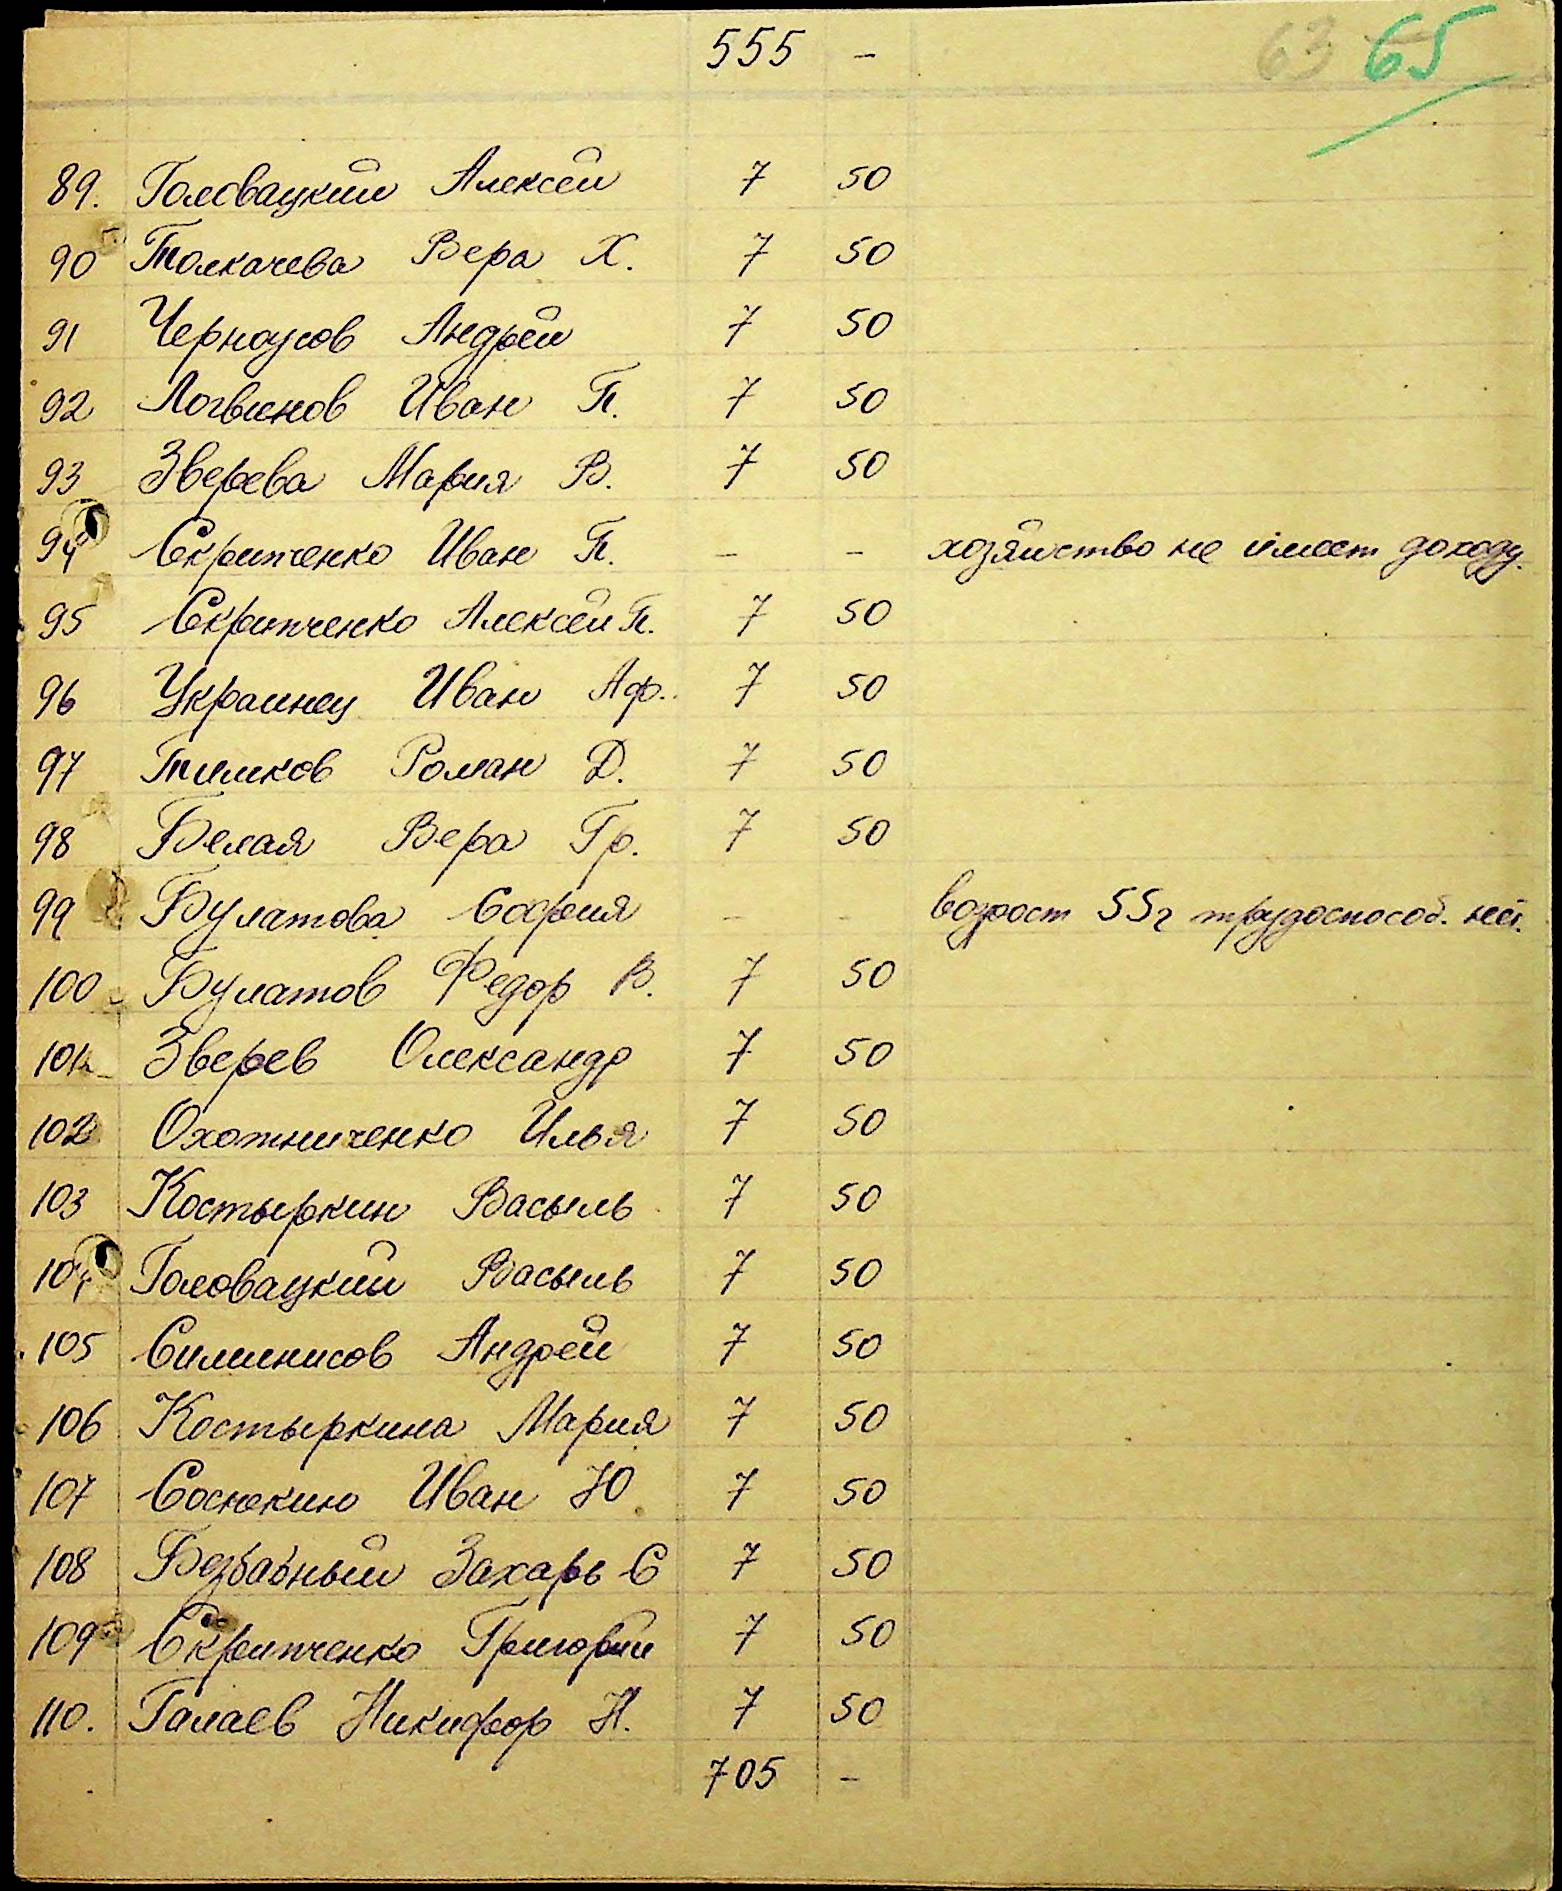 555 - 63 65
89. Головацкий Алексей 7 50
90 Толкачева Вера Х. 7 50
91 Черноусов Андрей 7 50
92 Логвинов Иван П. 7 50
93 Зверева Мария В. 7 50
94 Скрипченко Иван П. - - хозяйство не имеет доходу.
95 Скрипченко Алексей П. 7 50
96 Украинец Иван Аф. 7 50
97 Тимков Роман Д. 7 50
98 Белая Вера Гр. 7 50
99 Булатова София - - возраст 55г трудоспособ. нет.
100 Булатов Федор В. 7 50
101 Зверев Олександр 7 50
102 Охотниченко Илья 7 50
103 Костыркин Васыль 7 50
104 Головацкий Васыль 7 50
105 Силинисов Андрей 7 50
106 Костыркина Мария 7 50
107 Соснекин Иван Ю 7 50
108 Безбабный Захарь С 7 50
109 Скрипченко Григорий 7 50
110. Галаев Никифор Н. 7 50
705 -